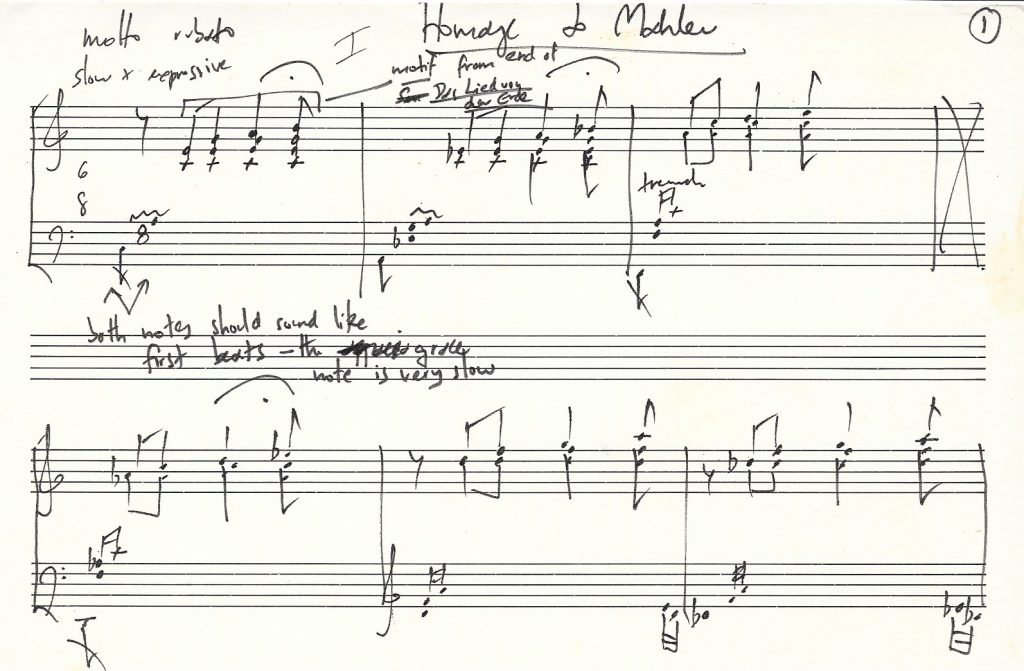 molto rubato
I
Homage to Mahler
1
slow + expressive
motif from end of
Das Lied von
der Erde
6
8
tremolo
both notes should sound like
first beats – the grace
note is very slow